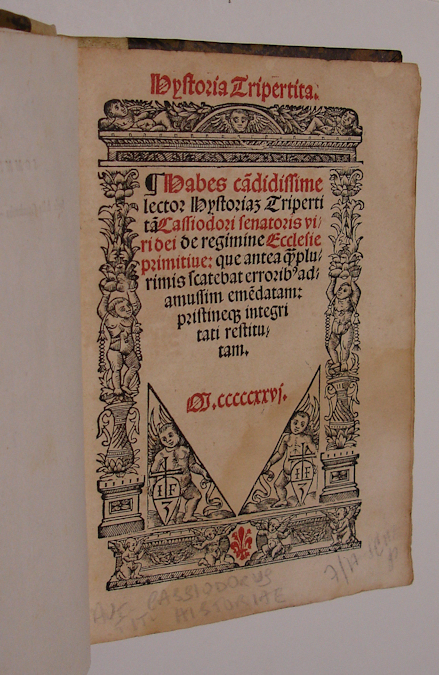 Hystoria Tripertita.
¶ Habes cādidissime
lector Hystoriaʒ Triperti
tā Cassiodori senatoris vi/
ri dei de regimine Ecclesie
primitiue: que antea qȝ̄plu/
rimis scatebat erroribꝰ ad/
amussim emēdatam:
pristineqȝ integri
tati restitu/
tam.
M.cccccxxvj.
I F
I F
CASSIODORUS
HISTORIAE